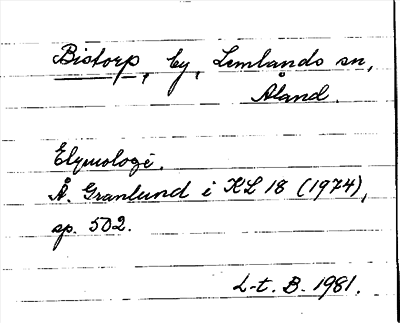 Bistorp, by, Lemlands sn,
Åland.
Etymologi.
Å. Granlund i KL 18 (1974),
sp. 502.
L-t. B. 1981.